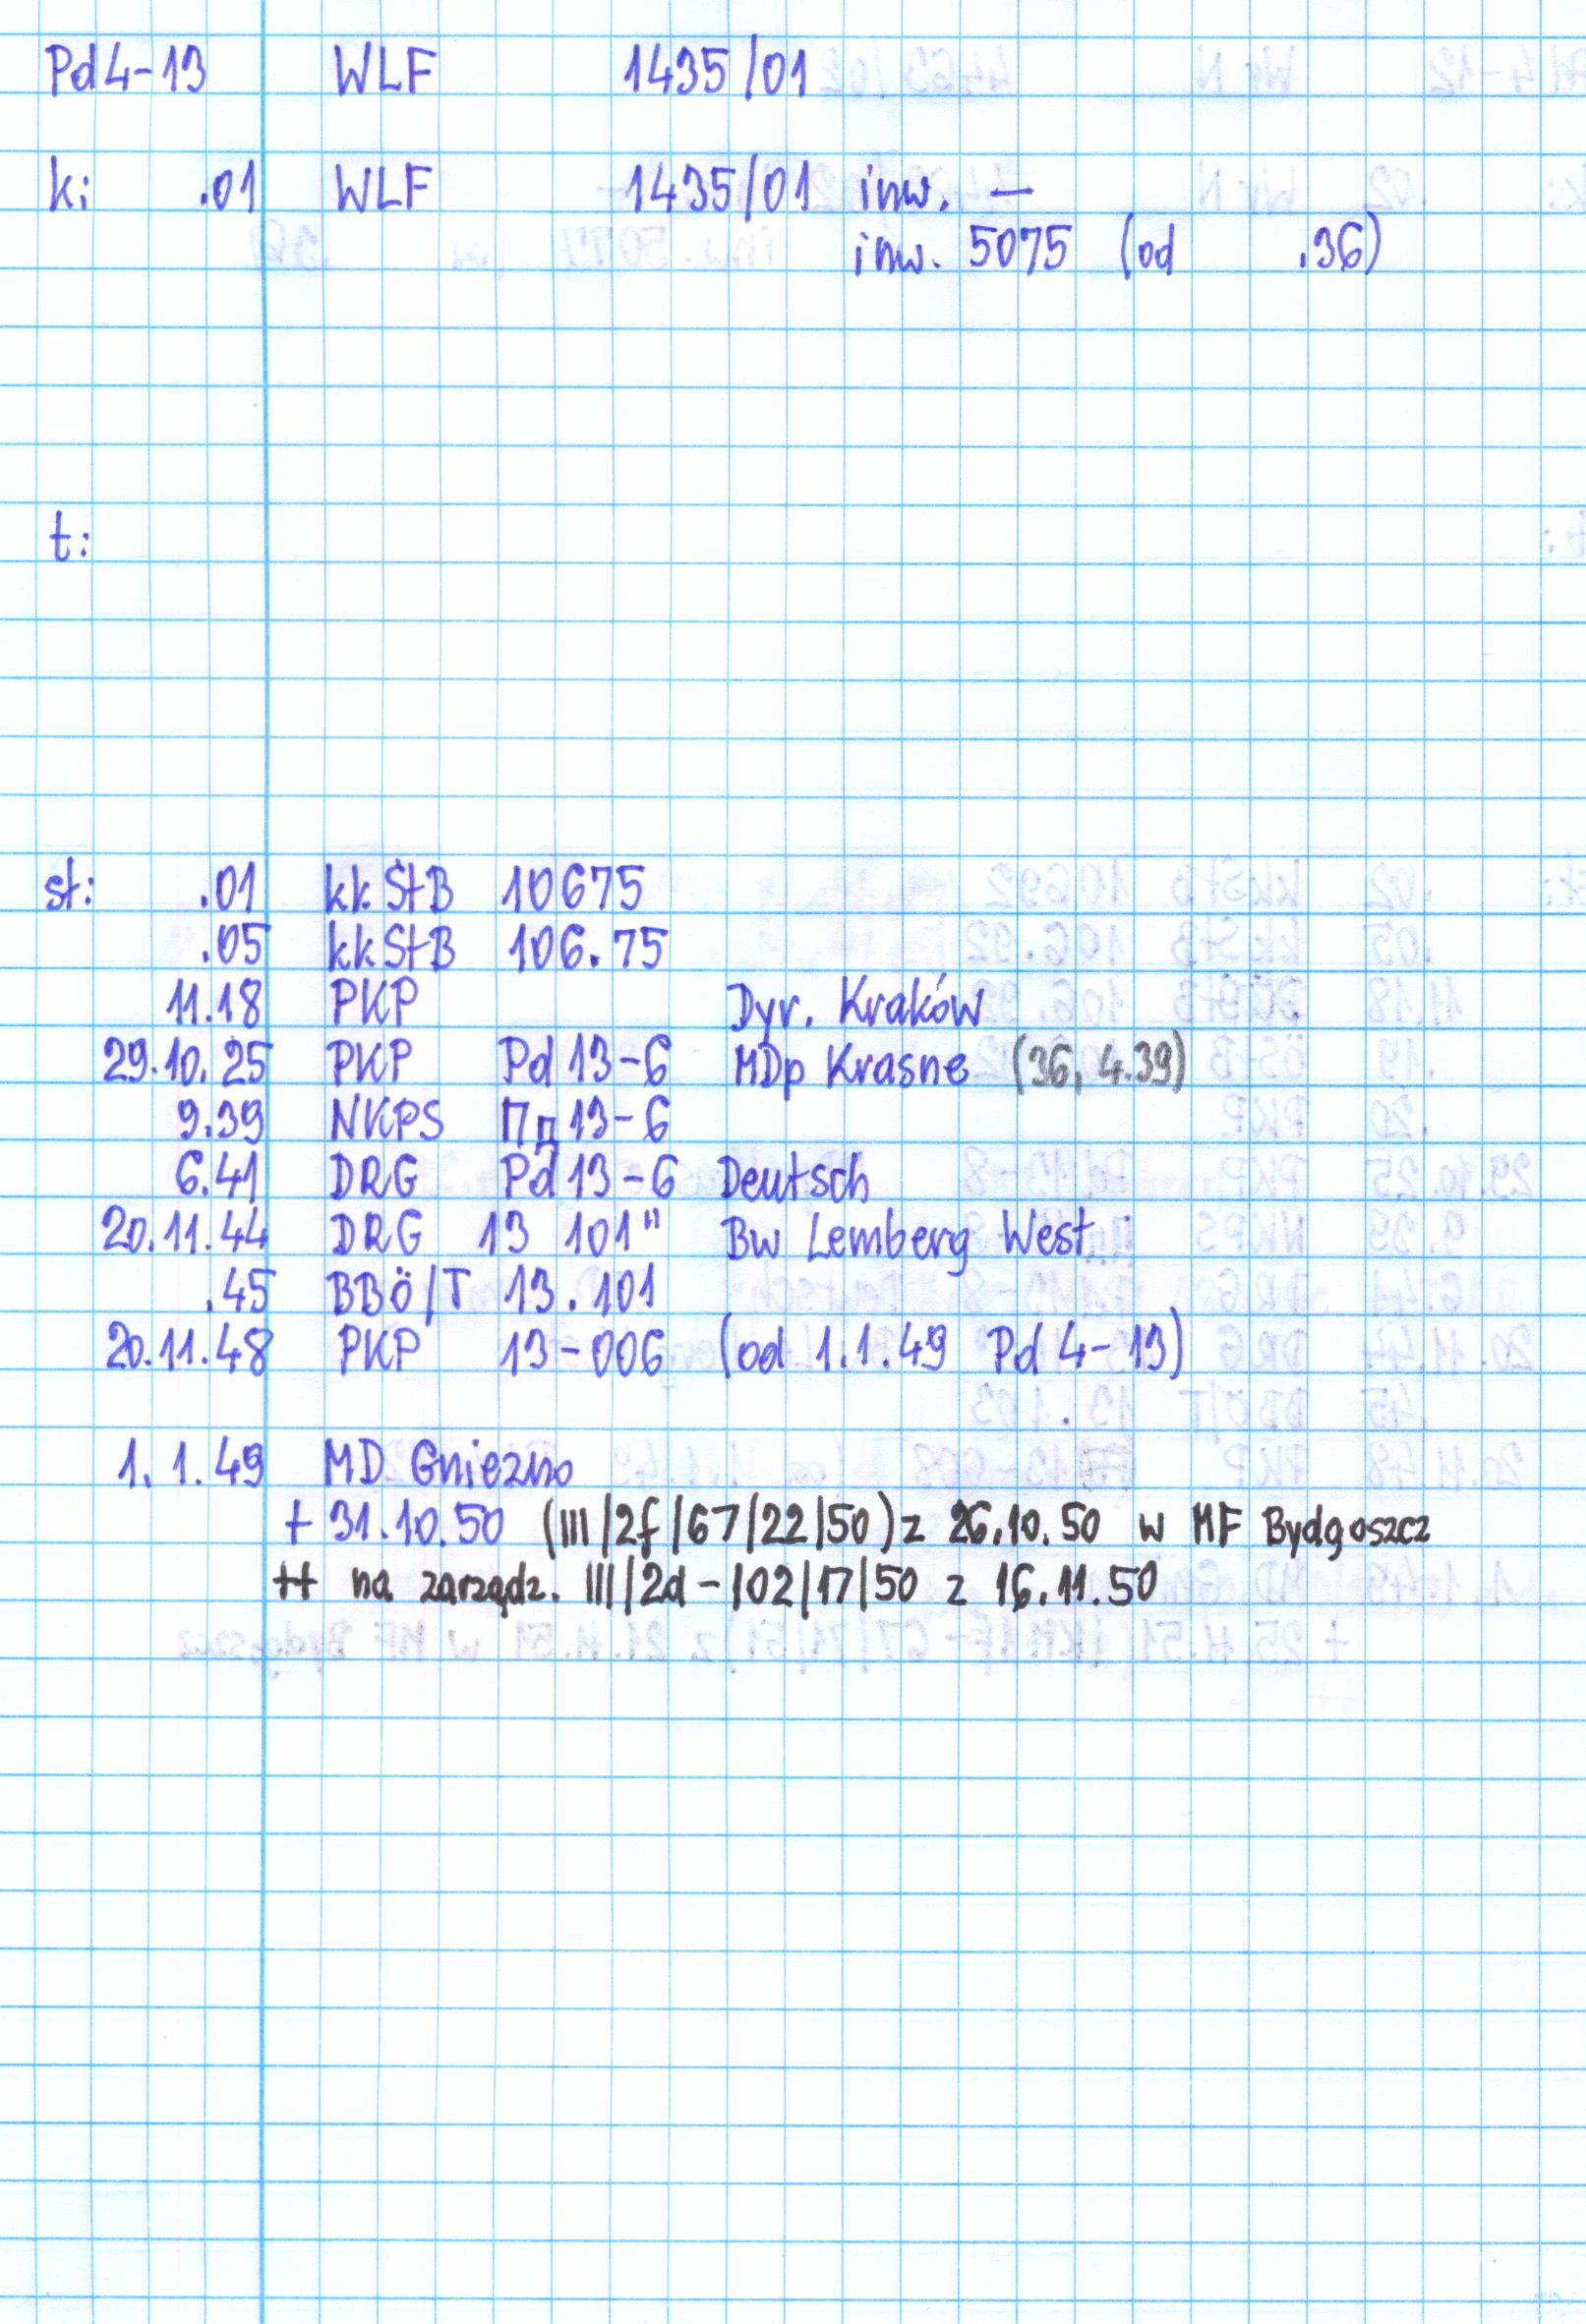 Pd4-13 WLF 1435/01
k: .01 WLF 1435/01 inw. —
inw. 5075 (od .36)
t:
st: .01 kkStB 10675
.05 kkStB 106.75
11.18 PKP Dyr. Kraków
29.10.25 PKP Pd13-6 MDp Krasne (36, 4.39)
9.39 NKPS Пд13-6
6.41 DRG Pd13-6 Deutsch
20.11.44 DRG 13 101" Bw Lemberg West
.45 BBÖ/T 13.101
20.11.48 PKP 13-006 (od 1.1.49 Pd4-13)
1.1.49 MD Gniezno
+ 31.10.50 (III/2f/67/22/50) z 26.10.50 w MF Bydgoszcz
++ na zarządz. III/2d-102/17/50 z 16.11.50